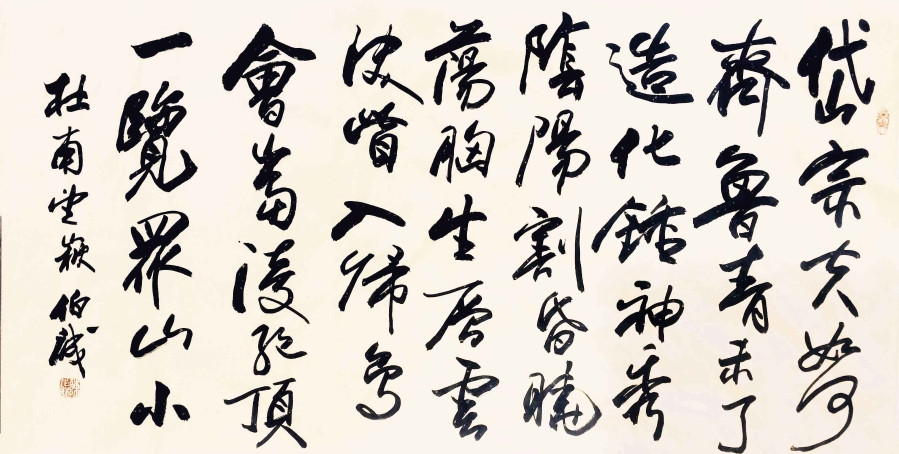 岱宗夫如何
齊魯青未了
造化鍾神秀
陰陽割昏曉
蕩胸生層雲
決眥入歸鳥
會當凌絕頂
一覽眾山小
杜甫望嶽 伯誠